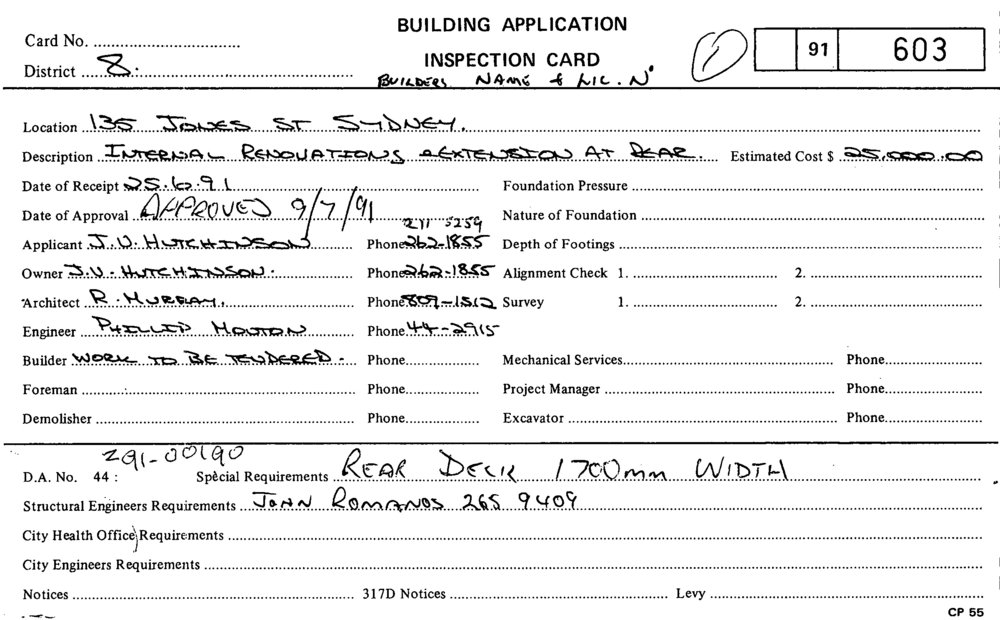 BUILDING APPLICATION
Card No.
INSPECTION CARD
91 603
District 8.
BUILDERS NAME & LIC. No
Location 135 JONES ST SYDNEY.
Description INTERNAL RENOVATIONS & EXTENSION AT REAR. Estimated Cost $ 25,000.00
Date of Receipt 25.6.91 Foundation Pressure
Date of Approval APPROVED 9/7/91 Nature of Foundation
211 5259
Applicant J.V. HUTCHINSON Phone 262-1855 Depth of Footings
Owner J.V. HUTCHINSON. Phone 262-1855 Alignment Check 1. 2.
Architect R. MURRAY. Phone 809-1512 Survey 1. 2.
Engineer PHILLIP Phone 44-2915
Builder WORK TO BE TENDERED. Phone Mechanical Services Phone
Foreman Phone Project Manager Phone
Demolisher Phone Excavator Phone
Z91-00190
D.A. No. 44 : Special Requirements REAR DECK 1700mm WIDTH
Structural Engineers Requirements JOHN ROMANOS 265 9409
City Health Office Requirements
City Engineers Requirements
Notices 317D Notices Levy
CP 55